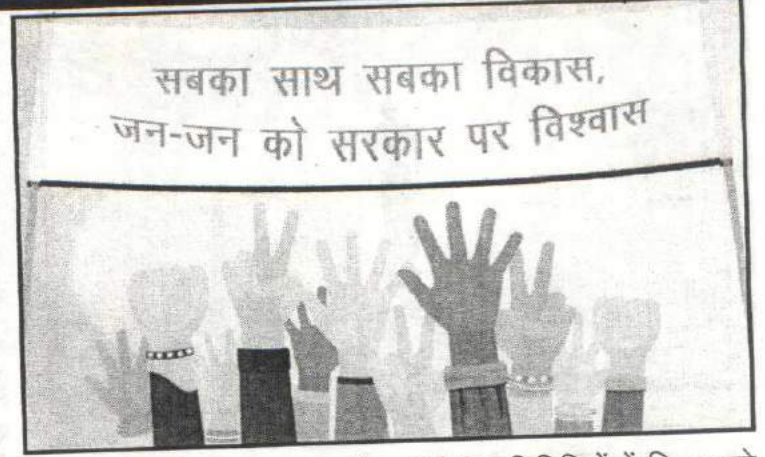 सबका साथ सबका विकास,
जन-जन को सरकार पर विश्वास